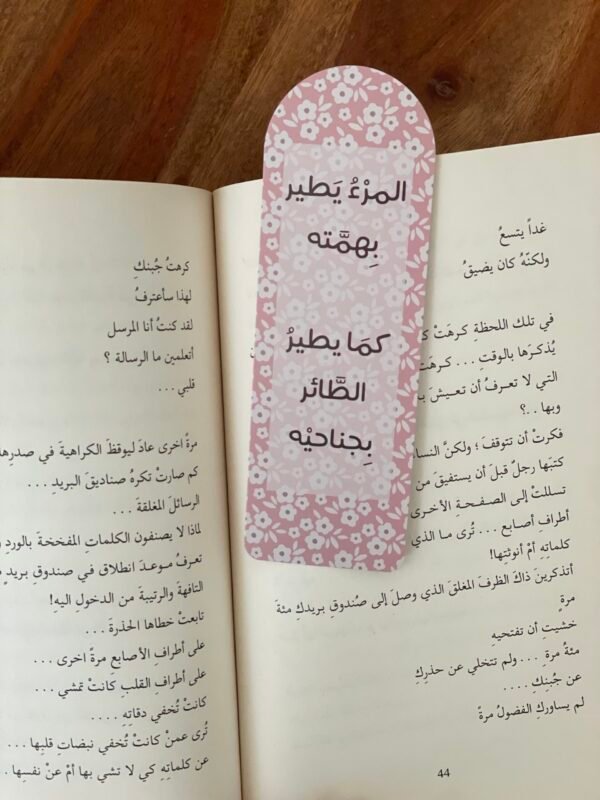 المرْءُ يَطير
بِهمَّته
كمَا يطيرُ
الطَّائر
بِجناحيْه
غداً يتسعُ
ولكنّهُ كان يضيقُ
في تلك اللحظةِ كرهَتْ
يُذكرَها بالوقتِ . . . كرهَت
التي لا تعرفُ أن تعيشَ
وبها . .؟
فكرتْ أن تتوقفَ ؛ ولكنَّ
كتبَها رجلٌ قبلَ أن يستفيقَ من
تسللتْ إلى الصفحةِ الأخرى
أطرافِ أصابع . . . تُرى ما الذي
كلماتهِ أمْ أنوثتِها!
أتذكرينَ ذاكَ الظرفَ المغلقَ الذي وصلَ إلى صُندوقِ بريدكِ مئةَ
مرةٍ
خشيتِ أن تفتحيهِ
مئةَ مرةٍ . . . ولم تتخلي عن حذركِ
عن جُبنِكِ . . . .
لم يساوركِ الفضولُ مرةً
44
كرهتُ جُبنكِ
لهذا سأعترفُ
لقد كنتُ أنا المرسل
أتعلمين ما الرسالة ؟
قلبي . . .
مرةً اخرى عادَ ليوقظَ الكراهيةَ في صدرِها
كم صارتْ تكرهُ صناديقَ البريدِ . . .
الرسائلَ المغلقةَ . . .
لماذا لا يصنفون الكلماتِ المفخخةَ بالوردِ
تعرفُ موعدَ انطلاقٍ في صندوقِ بريدٍ
التافهةَ والرتيبةَ من الدخولِ اليه!
تابعتْ خطاها الحذرةَ . . .
على أطرافِ الأصابعِ مرةً اخرى . . .
على أطرافِ القلبِ كانتْ تمشي . . .
كانتْ تُخفي دقاتِهِ . . . .
تُرى عمنْ كانتْ تُخفي نبضاتِ قلبِها . . .
عن كلماتِهِ كي لا تشي بها أمْ عنْ نفسِها .